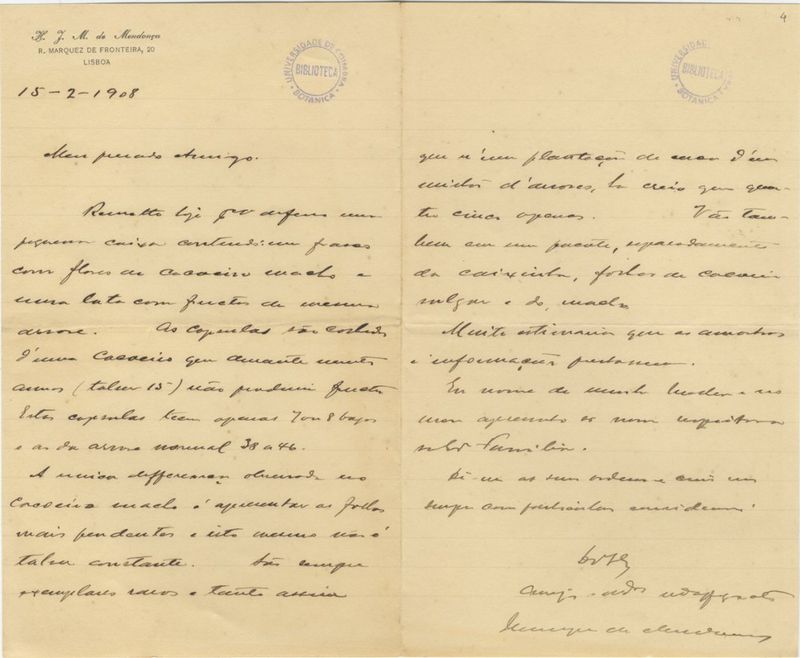 H. J. M. de Mendonça
R. MARQUEZ DE FRONTEIRA, 20
LISBOA
UNIVERSIDADE DE COIMBRA
BIBLIOTECA
BOTANICA
15-2-1908
Meu presado Amigo.
Remetto hoje defeza uma
pequena caixa contendo um frasco
com flores de cacoeiro macho e
uma lata com fructos da mesma
arvore. As capsulas são colhidas
d'uma Cacoeiro que durante muitos
annos (talvez 15) não produziu fructo
Estas capsulas teem apenas 7 ou 8 bagos
e as da arvore normal 38 a 46.
A unica differença observada no
Cacoeiro macho é apresentar as folhas
mais pendentes e isto mesmo não é
talvez constante. São sempre
exemplares raros e tanto assim
4
UNIVERSIDADE DE COIMBRA
BIBLIOTECA
BOTANICA
que n'uma plantação de mais d'um
milhão d'arvores, ha creio que qua-
tro cinco apenas. Vão tam-
bem em um pacote, separadamente
da caixinha, folhas de cacoeiro
vulgar e do macho
Muito estimarei que as amostras
e informações prestem.
Em nome de minha mulher e no
meu apresento os nossos respeitos a
Familia.
as suas ordens e com
sempre com particular consideração
amigo
de Mendonça